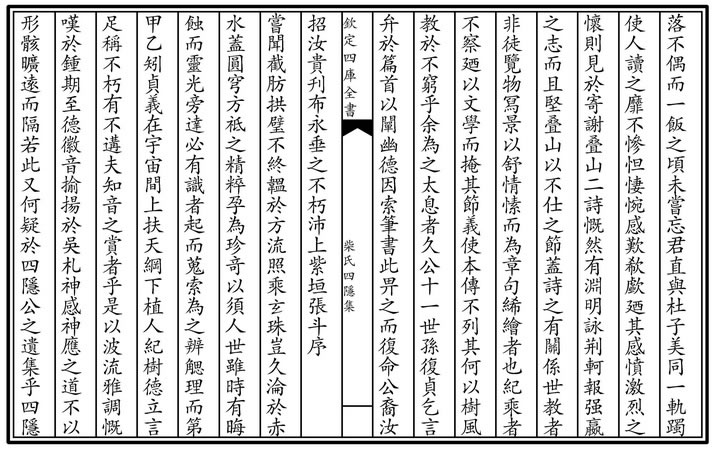 落不偶而一飯之頃未嘗忘君直與杜子美同一軌躅
使人讀之靡不慘怛悽惋感歎欷歔廼其感憤激烈之
懷則見於寄謝疊山二詩慨然有淵明詠荆軻報强嬴
之志而且堅疊山以不仕之節蓋詩之有關係世教者
非徒覽物冩景以舒情愫而為章句絺繪者也紀乘者
不察廼以文學而掩其節義使本傳不列其何以樹風
教於不窮乎余為之太息者久公十一世孫復貞乞言
弁於篇首以闡幽德因索筆書此畀之而復命公裔汝
欽定四庫全書
柴氏四隱集
招汝貴刋布永垂之不朽沛上紫垣張斗序
嘗聞截肪拱璧不終韞於方流照乘玄珠豈久淪於赤
水蓋圓穹方祇之精粹孕為珍奇以須人世雖時有晦
蝕而靈光旁達必有識者起而蒐索為之辨䚡理而第
甲乙矧貞義在宇宙間上扶天綱下植人紀樹德立言
足稱不朽有不遘夫知音之賞者乎是以波流雅調慨
嘆於鍾期至德徽音揄揚於吳札神感神應之道不以
形骸曠逺而隔若此又何疑於四隱公之遺集乎四隱